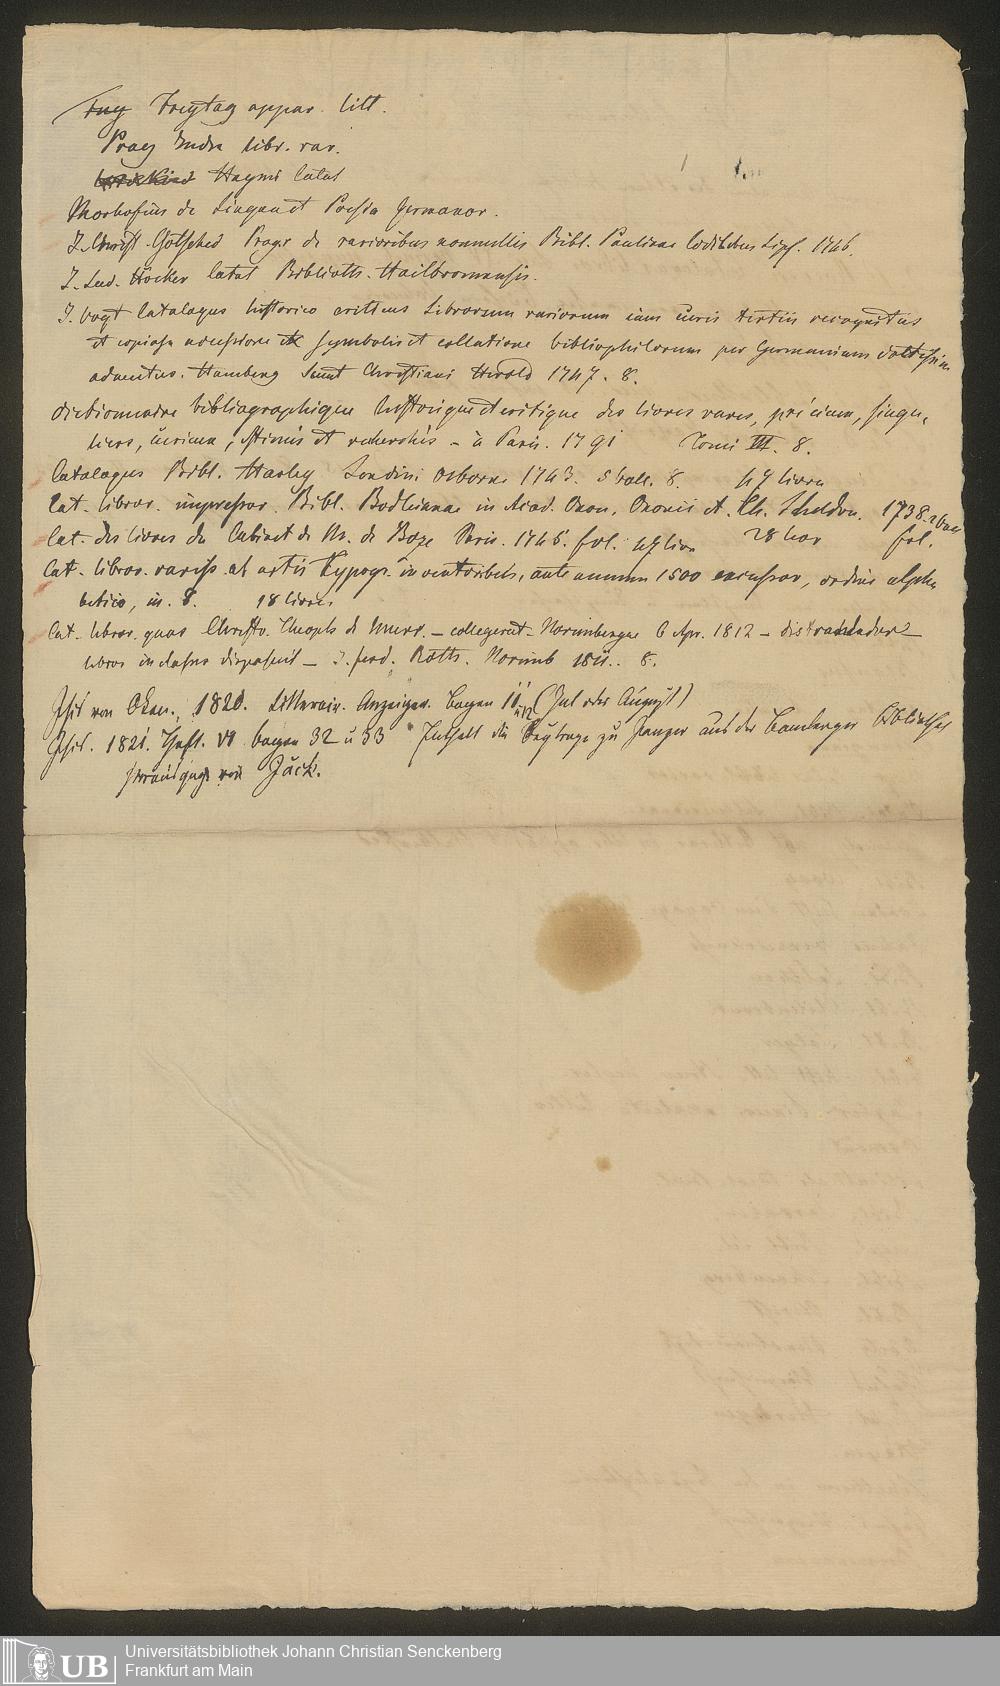 Freytag appar. litt.
Praes Index libr. rar.
Haymi Catal
Morhofius de Lingua et Poesia germanor.
J. Christ. Gotsched Progr de rarioribus nonnullis Bibl. Paulinae Codicibus Lips. 1746.
J. Lud. Höcker Catal Biblioth. Hailbronnensis.
J. Vogt Catalogus historico criticus Librorum rariorum iam curis tertiis recognitus
et copiosa accessione ex symbolis et collatione bibliophilorum per Germaniam doctissim.
adauctus. Hamburg Sumt Christiani Herold 1747. 8.
Dictionnaire bibliographique historique et critique des livres rares, précieux, singu-
liers, curieux, estimés et recherchés - à Paris. 1791 Tomi III. 8.
Catalogus Bibl. Harley Londini Osborne 1743. 5 Voll. 8. 47 livres
Cat. libror. impressor. Bibl. Bodleianae in Acad. Oxon. Oxonii Th. Sheldon. 1738. 2 Voll
Cat. des livres du Cabinet de M. de Boze Paris. 1745. fol. 47 livr 28 livr fol.
Cat. libror. rariss ab artis typogr. inventoribus, ante annum 1500 excusor, ordine alpha
betico, in. 8. 18 livres
Cat. libror. quos Christo. Theoph. de Murr. – collegerat – Norimbergae 6 Apr. 1812 – distrahendor –
libros in classes disposuit – J. ferd. Roth. Norimb 1811. 8.
Isis von Oken. 1820. Litterair. Anzeiger. Bogen 11 u 12 (Jul oder August)
Isis. 1821. Heft. VI bogen 32 u 33 Enthält die Beytrage zu Panzer aus der Bamberger Bibliothek
herausgeg von Jäck.
Universitätsbibliothek Johann Christian Senckenberg
Frankfurt am Main
UB